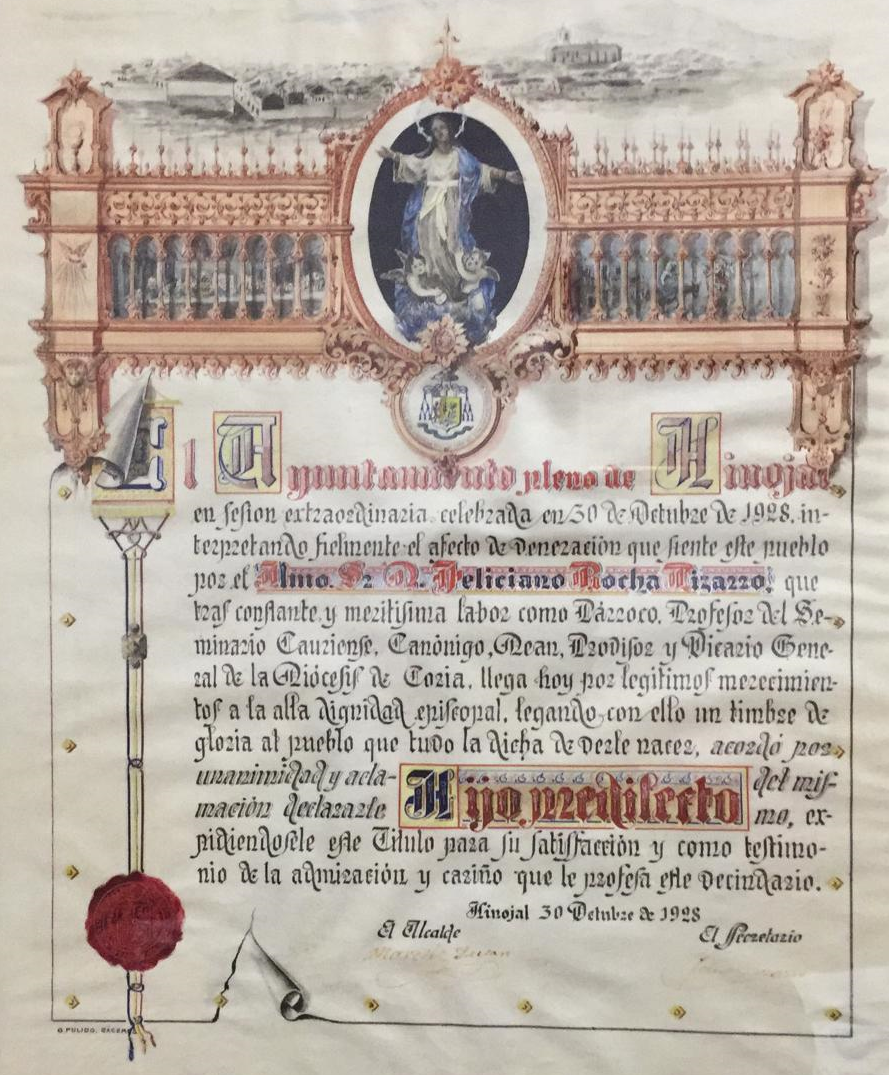 El Ayuntamiento pleno de Hinojal
en sesion extraordinaria, celebrada en 30 de Octubre de 1928, in-
terpretando fielmente el afecto de veneración que siente este pueblo
por el Ilmo. Sr. D. Feliciano Rocha Pizarro, que
tras constante y meritisima labor como Párroco, Profesor del Se-
minario Cauriense, Canónigo, Dean, Provisor y Vicario Gene-
ral de la Diócesis de Coria, llega hoy por legitimos merecimien-
tos a la alta dignidad episcopal, legando con ello un timbre de
gloria al pueblo que tuvo la dicha de verle nacer, acordó por
unanimidad y acla-
mación declararle Hijo predilecto del mis-
mo, ex-
pidiendosele este Titulo para su satisfacción y como testimo-
nio de la admiración y cariño que le profesa este vecindario.
Hinojal 30 Octubre de 1928
El Alcalde El Secretario
G. PULIDO.